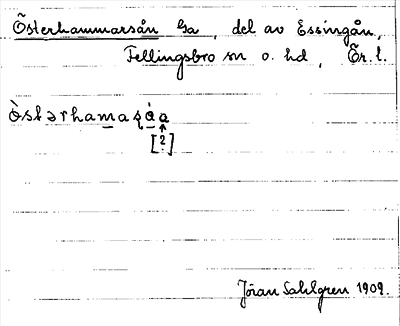 Österhammarsån Ga, del av Essingån,
Fellingsbro sn o. hd, Ör. l.
òstərhamaʂå̀a
[?]
Jöran Sahlgren 1909.